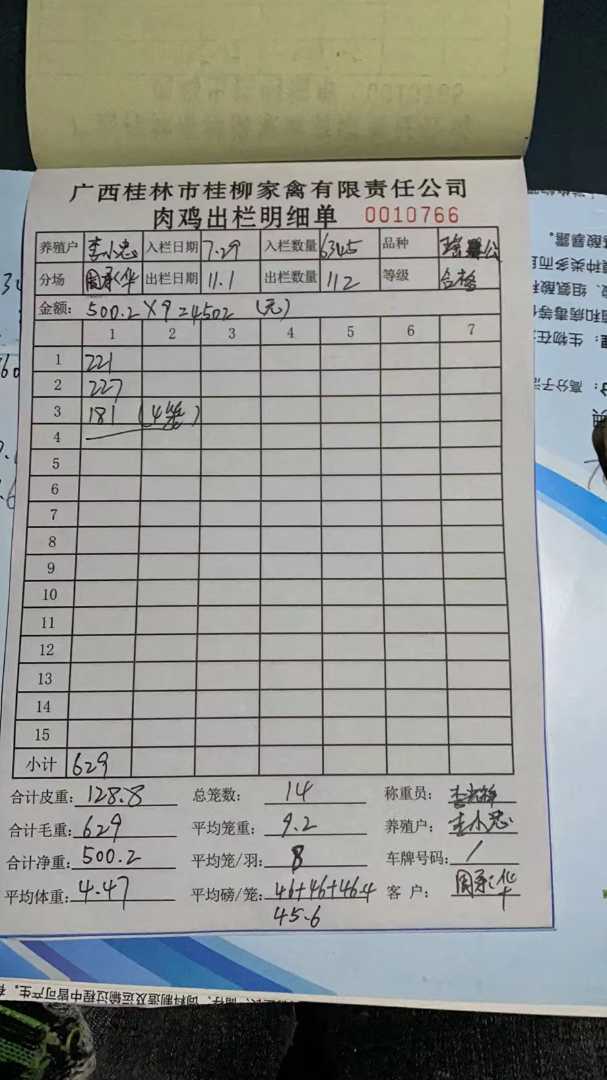 广西桂林市桂柳家禽有限责任公司
肉鸡出栏明细单 0010766
养殖户 李小忠 入栏日期 7.29 入栏数量 6345 品种
分场 周承华 出栏日期 11.1 出栏数量 112 等级 合格
金额: 500.2×9=4502 (元)
1 2 3 4 5 6 7
1 221
2 227
3 181 (4笼)
4
5
6
7
8
9
10
11
12
13
14
15
小计 629
合计皮重: 128.8 总笼数: 14 称重员:
合计毛重: 629 平均笼重: 9.2 养殖户: 李小忠
合计净重: 500.2 平均笼/羽: 8 车牌号码: /
平均体重: 4.47 平均磅/笼: 46+46+46.4 客 户: 周承华
45.6